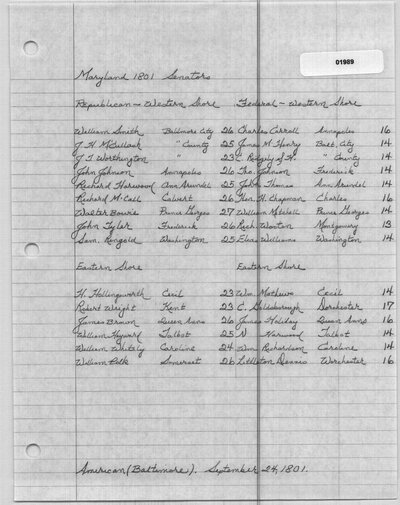 01989
Maryland 1801 Senators
Republican - Western Shore Federal - Western Shore
William Smith Baltimore City 26 Charles Carroll Annapolis 16
J. H. McCullock " County 25 James M. Henry Balt. City 14
J. T. Worthington " 23 C. Ridgely of H. " County 14
John Johnson Annapolis 26 Tho. Johnson Frederick 14
Richard Harwood Ann Arundel 25 John Thomas Ann. Arundel 14
Richard McCall Calvert 26 Hen. H. Chapman Charles 16
Walter Bowie Prince Georges 27 William Mitchell Prince Georges 14
John Tyler Frederick 26 Rich. Wooton Montgomery 13
Sam. Ringold Washington 25 Eleas Williams Washington 14
Eastern Shore Eastern Shore
H. Hollingsworth Cecil 23 Wm. Mathews Cecil 14
Robert Wright Kent 23 C. Goldsborough Dorchester 17
James Brown Queen Anns 26 James Holiday Queen Anns 16
William Hayward Talbot 25 N. Harwood Talbot 14
William Whitely Caroline 24 Wm. Richardson Caroline 14
William Polk Somerset 26 Littleton Dennis Worchester 16
American (Baltimore). September 24, 1801.